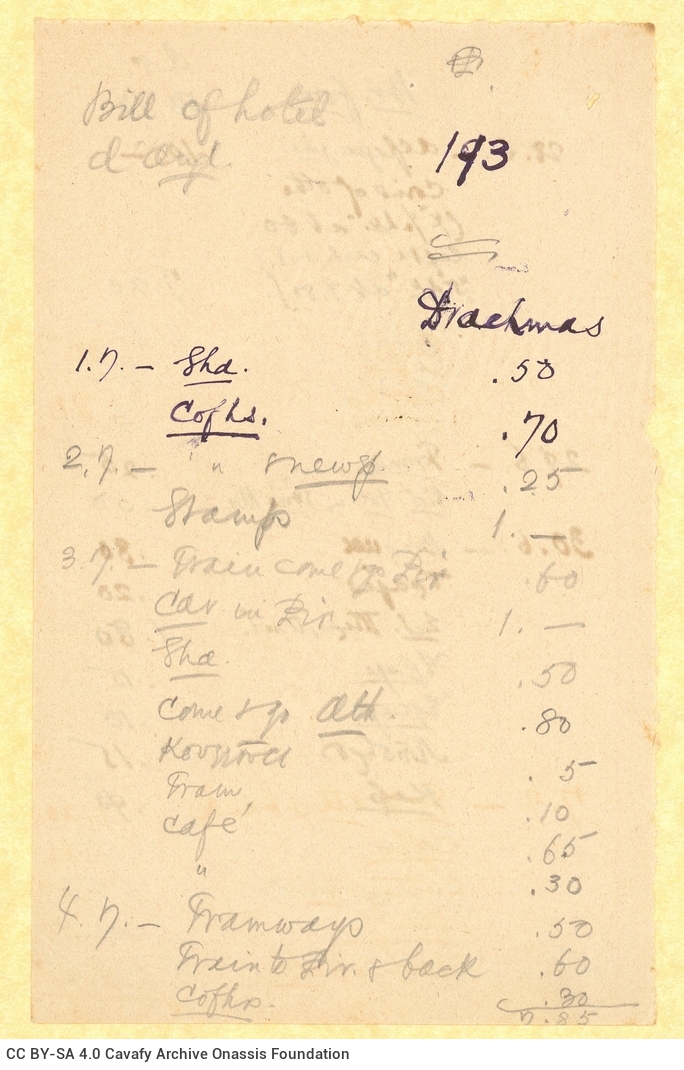 Bill of hotel
193
Drachmas
1.7. — Shd. .50
Cofhs. .70
2.7. — " & newsp .25
Stamps 1. —
3.7. — Train come & go Pir .60
Car in Pir. 1. —
Shd. .50
Come & go Ath. .80
.5
Tram .10
Café .65
" .30
4.7. — Tramways .50
Train to Pir. & back .60
Cofhs. .30
7.85
CC BY-SA 4.0 Cavafy Archive Onassis Foundation